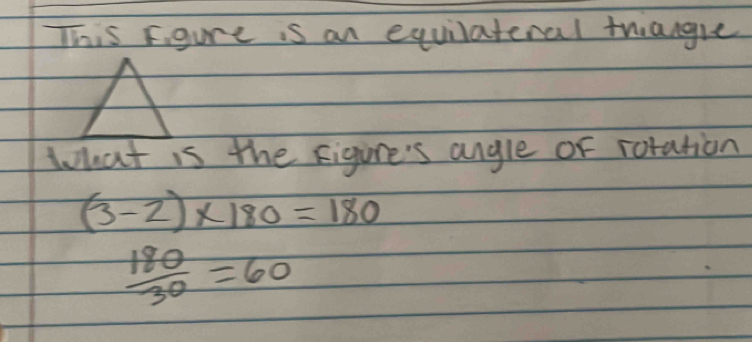 This figure is an equilateral triangle
What is the figure's angle of rotation
(3-2) × 180 = 180
180/30 = 60